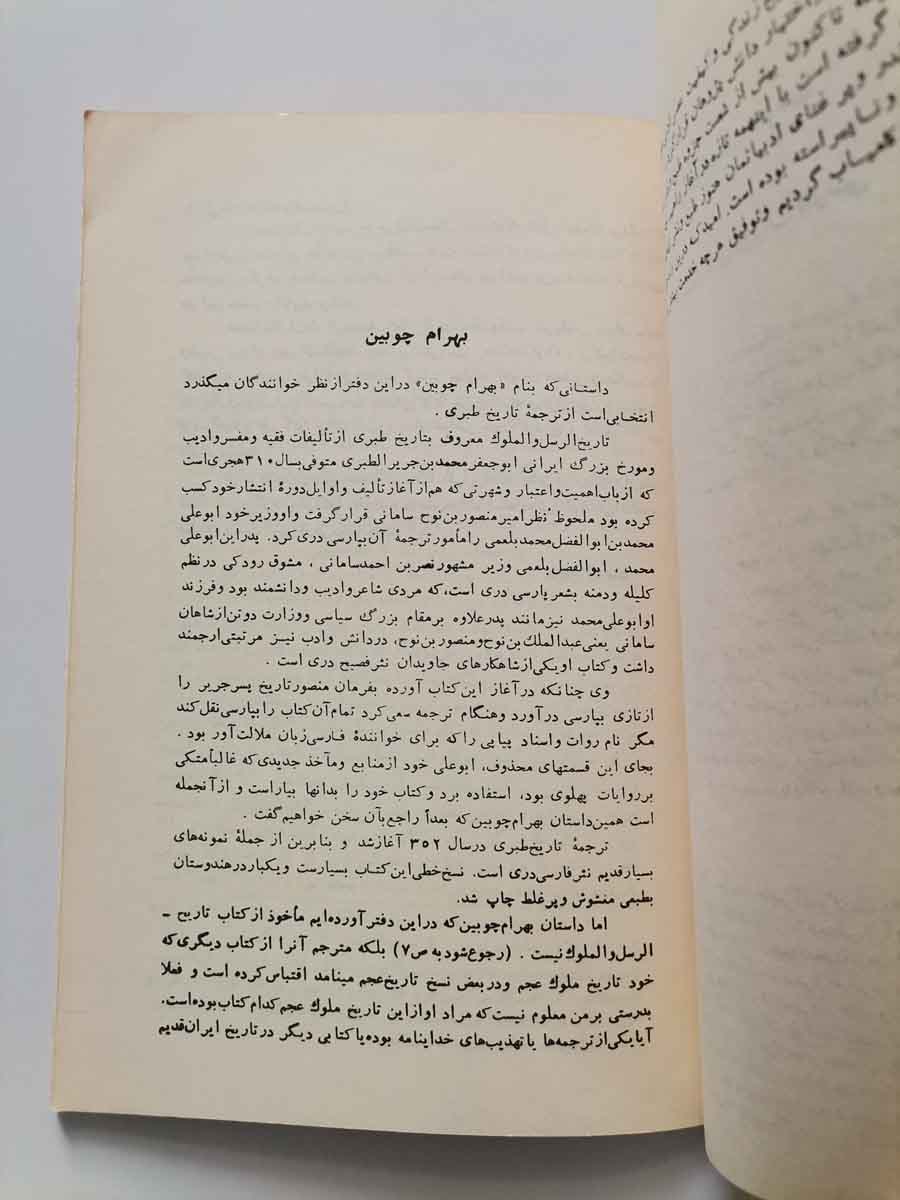 زندگی و
اختیار دانش پژوهان قرار
تاکنون بیش از شصت جزوه
گرفته است با اینهمه تازه در آغاز
غنای ادبیاتمان هنوز
وناپیراسته بوده است. امید که در
کامیاب گردیم وتوفیق هرچه خدمت
بهرام چوبین
داستانی‌که بنام «بهرام چوبین» دراین دفترازنظر خوانندگان میگذرد
انتخابی‌است ازترجمهٔ تاریخ طبری .
تاریخ‌الرسل‌والملوك معروف بتاریخ طبری ازتألیفات فقیه ومفسروادیب
ومورخ بزرگ ایرانی ابوجعفرمحمدبن‌جریرالطبری متوفی‌بسال۳۱۰هجری‌است
که ازباب‌اهمیت‌واعتبار وشهرتی‌که هم‌ازآغازتألیف واوایل‌دورهٔ انتشارخودکسب
کرده بود ملحوظ نظرامیرمنصوربن‌نوح سامانی قرارگرفت واووزیرخود ابوعلی
محمدبن‌ابوالفضل‌محمدبلعمی رامأمورترجمهٔ آن‌بپارسی دری‌کرد. پدراین‌ابوعلی
محمد ، ابوالفضل‌بلعمی وزیر مشهورنصربن احمدسامانی ، مشوق رودکی درنظم
کلیله ودمنه بشعرپارسی دری است،که مردی شاعروادیب ودانشمند بود وفرزند
اوابوعلی‌محمد نیزمانند پدرعلاوه برمقام بزرگ سیاسی ووزارت دوتن‌ازشاهان
سامانی یعنی‌عبدالملك‌بن‌نوح‌ومنصوربن‌نوح، دردانش وادب نیـز مرتبتی‌ارجمند
داشت وکتاب اویکی‌ازشاهکارهای جاویدان نثرفصیح دری است .
وی چنانکه درآغاز این‌کتاب آورده بفرمان منصورتاریخ پسرجریر را
ازتازی بپارسی درآورد وهنگام ترجمه سعی‌کرد تمام‌آن‌کتاب رابپارسی‌نقل‌کند
مگر نام روات واسناد پیاپی راکه برای خوانندهٔ فارسی‌زبان ملالت‌آور بود .
بجای این قسمتهای محذوف، ابوعلی خود ازمنابع ومآخذ جدیدی‌که غالباًمتکی
برروایات پهلوی بود، استفاده برد وکتاب خود را بدانها بیاراست و ازآنجمله
است همین‌داستان بهرام‌چوبین‌که بعداً راجع‌بآن سخن خواهیم‌گفت .
ترجمهٔ تاریخ‌طبری درسال ۳۵۲ آغازشد و بنابرین از جملهٔ نمونه‌های
بسیارقدیم نثرفارسی‌دری است. نسخ‌خطی‌این‌کتاب بسیارست ویکباردرهندوستان
بطبعی مغشوش وپرغلط چاپ شد.
اما داستان بهرام‌چوبین‌که دراین دفترآورده‌ایم مأخوذ ازکتاب تاریخ ـ
الرسل‌والملوك‌نیست . (رجوع‌شودبه‌ص۷) بلکه مترجم آنرا ازکتاب دیگری‌که
خود تاریخ ملوك عجم ودربعض نسخ تاریخ‌عجم مینامد اقتباس‌کرده است و فعلا
بدرستی برمن معلوم نیست‌که مراد اوازاین تاریخ ملوك عجم‌کدام‌کتاب‌بوده‌است.
آیایکی‌ازترجمه‌ها یاتهذیب‌های خداینامه بوده‌یاکتابی دیگر درتاریخ ایران‌قدیم